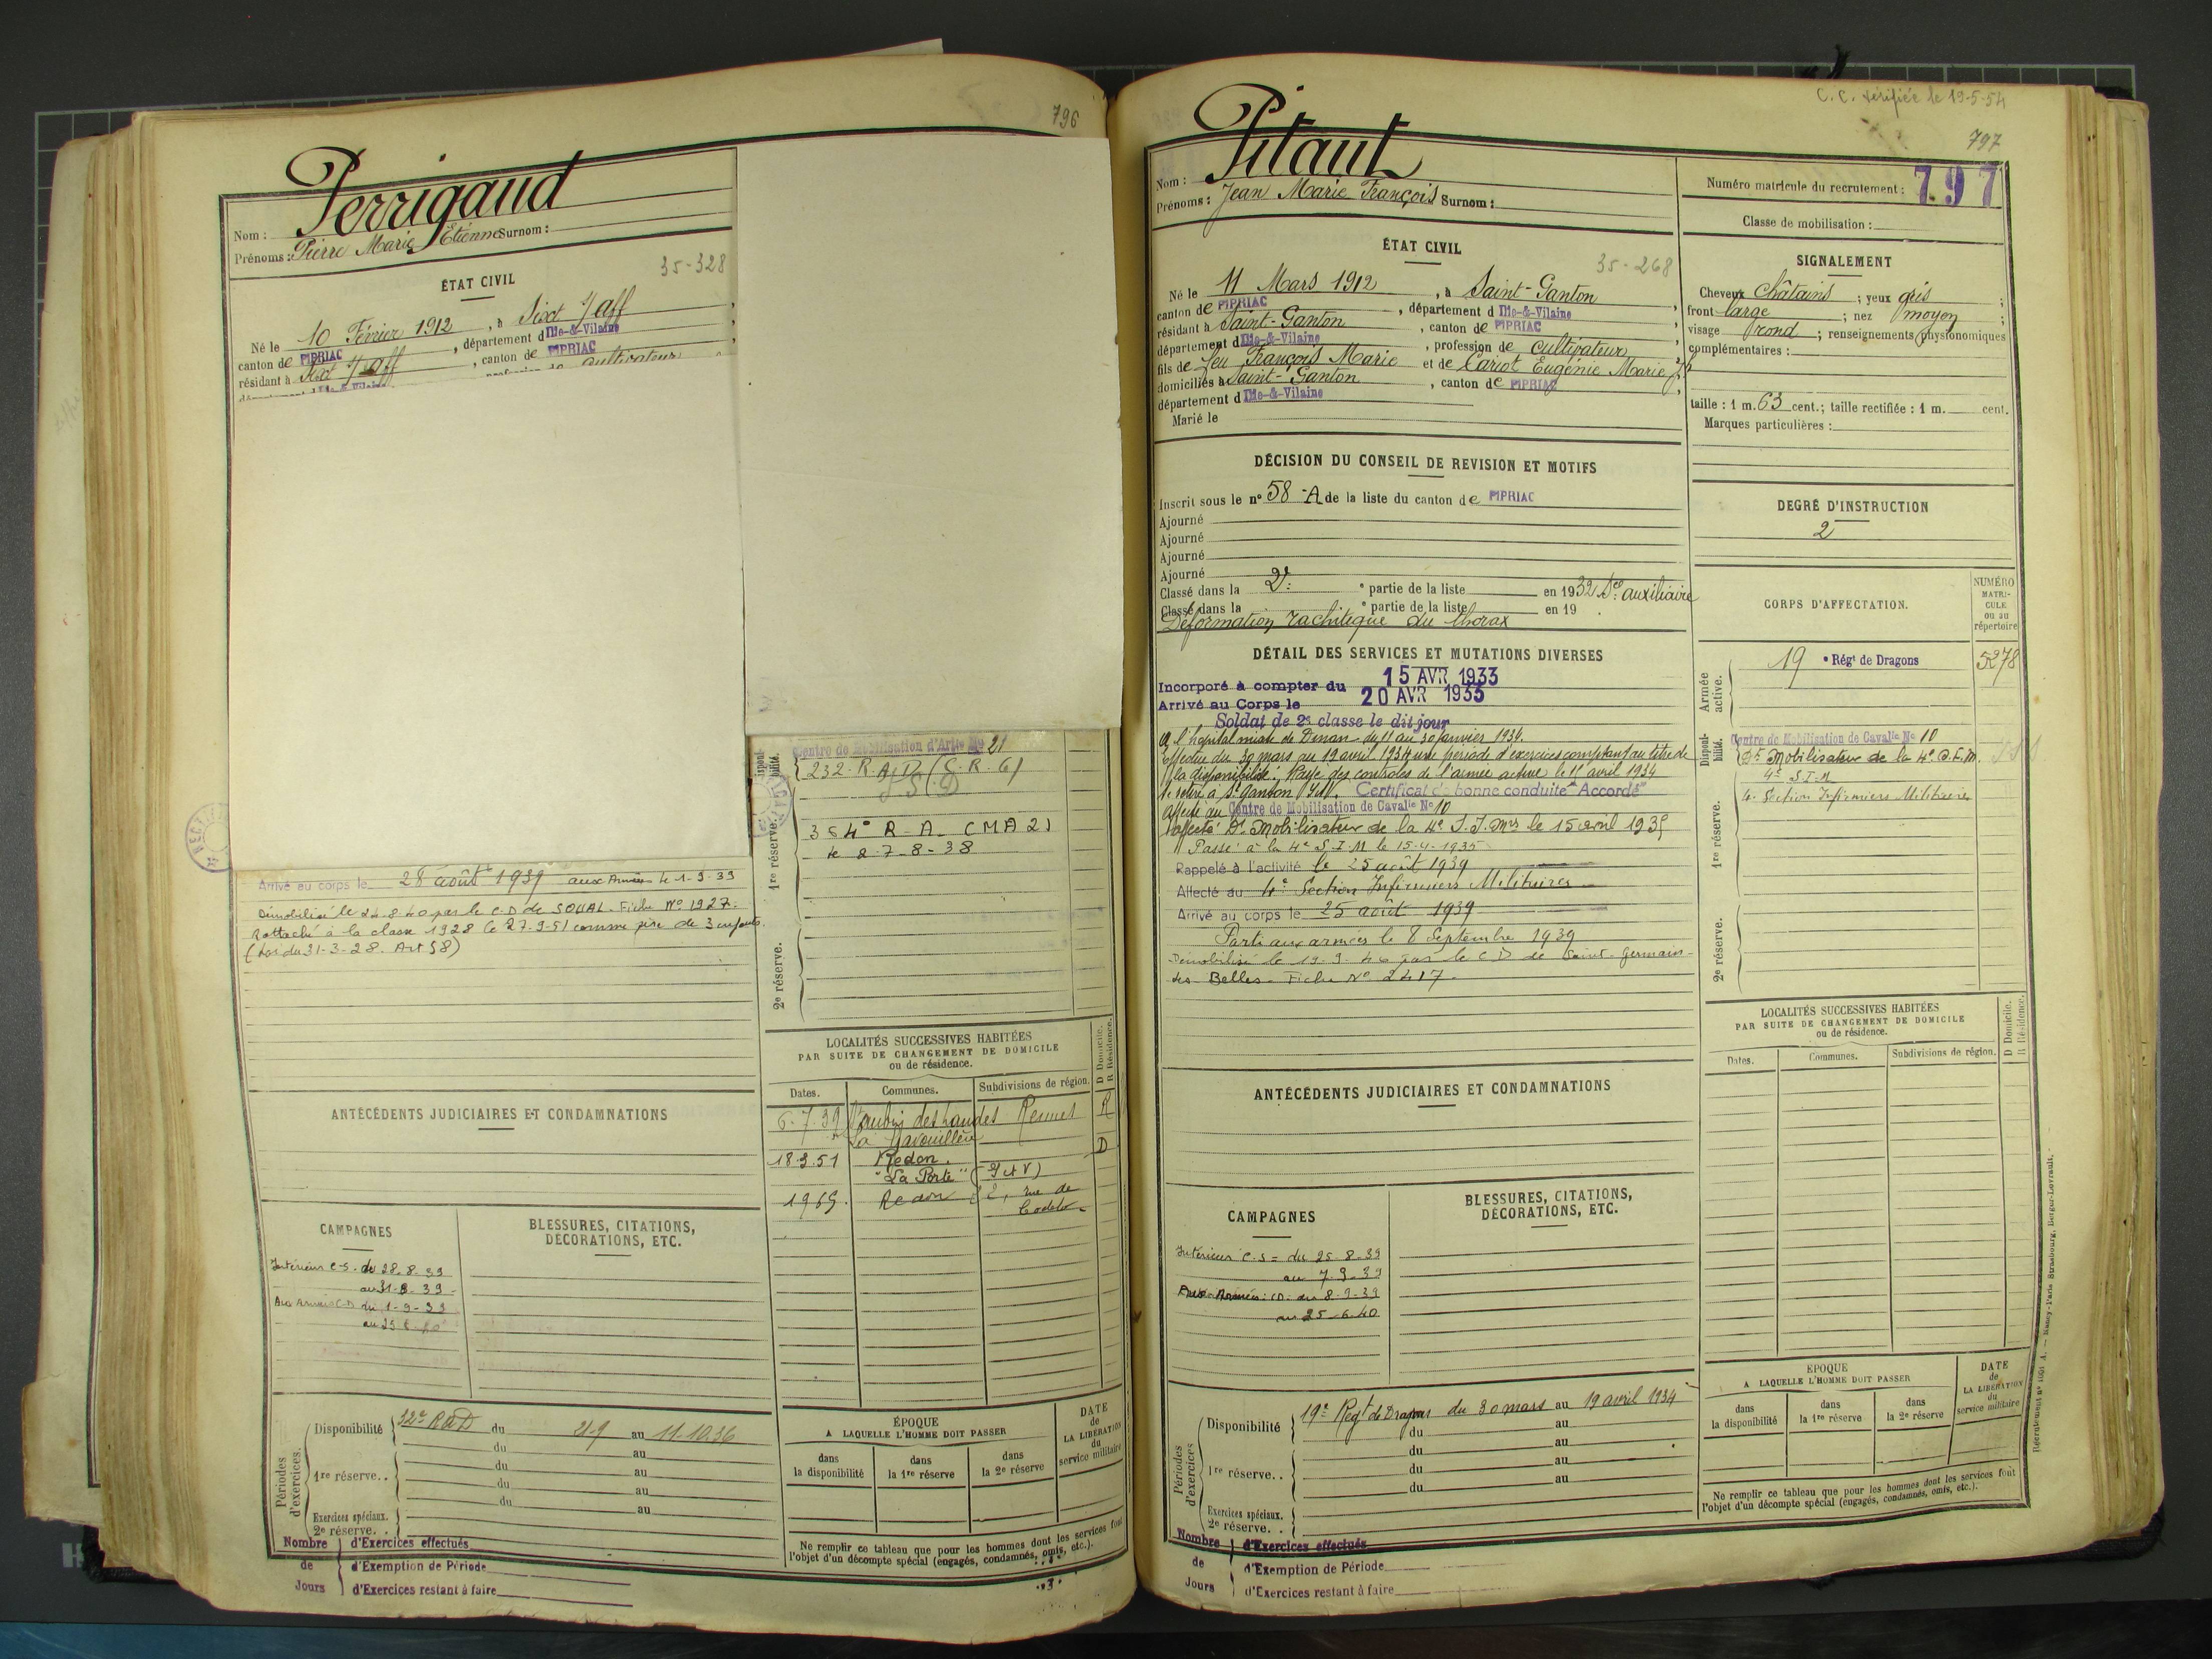 796
Perrigaud
Nom :
Prénoms : Pierre Marie Etienne Surnom :
35-328
ÉTAT CIVIL
Né le 10 Février 1912, à Sixt s/aff
canton de PIPRIAC, département d Ille-&-Vilaine,
résidant à Sixt s/aff, canton de PIPRIAC,
cultivateur
Centre de Mobilisation d'Artie No 21
232. R.A.D (C.R.6)
354e R-A- (MA 21
le 2-7-8-38
1re réserve.
2e réserve.
Arrivé au corps le 28 août 1939 aux Armées le 1-9-39
Démobilisé le 24.8.40 par le C.D de SOUAL. Fiche No 1927.
Rattaché à la classe 1928 le 27-9-51 comme père de 3 enfants.
(Loi du 31-3-28. Art 58)
ANTÉCÉDENTS JUDICIAIRES ET CONDAMNATIONS
LOCALITÉS SUCCESSIVES HABITÉES
PAR SUITE DE CHANGEMENT DE DOMICILE
ou de résidence.
Dates. Communes. Subdivisions de région. D Domicile. R Résidence.
6.7.39 St aubin des Landes Rennes R
La
18.3.51 Redon. D
"La Porte" (I et V)
1965. Redon 2, rue de
CAMPAGNES
BLESSURES, CITATIONS,
DÉCORATIONS, ETC.
Intérieur C-S. du 28.8.39
au 31-8-39-
Aux Armées C-D du 1-9-39
au 25 6-40
Périodes d'exercices.
Disponibilité 32e RAD du 21-9 au 11.10.36
du au
1re réserve. . du au
du au
du au
Exercices spéciaux.
2e réserve. .
Nombre de Jours
d'Exercices effectués
d'Exemption de Période
d'Exercices restant à faire
ÉPOQUE
A LAQUELLE L'HOMME DOIT PASSER
dans la disponibilité
dans la 1re réserve
dans la 2e réserve
DATE de LA LIBÉRATION du service militaire
Ne remplir ce tableau que pour les hommes dont les services font
l'objet d'un décompte spécial (engagés, condamnés, omis, etc.).
C.C. vérifiée le 19-5-54
797
Pitaut
Nom :
Prénoms : Jean Marie François Surnom :
Numéro matricule du recrutement : 797
Classe de mobilisation :
ÉTAT CIVIL
35-268
Né le 11 Mars 1912, à Saint-Ganton,
canton de PIPRIAC, département d Ille-&-Vilaine,
résidant à Saint-Ganton, canton de PIPRIAC,
département d Ille-&-Vilaine, profession de cultivateur
fils de feu François Marie et de Cariot Eugénie Marie
domiciliés à Saint-Ganton, canton de PIPRIAC,
département d Ille-&-Vilaine
Marié le
SIGNALEMENT
Cheveux châtains ; yeux gris ;
front large ; nez moyen ;
visage rond ; renseignements physionomiques
complémentaires :
taille : 1 m. 63 cent.; taille rectifiée : 1 m. cent.
Marques particulières :
DÉCISION DU CONSEIL DE REVISION ET MOTIFS
Inscrit sous le n° 58-A de la liste du canton de PIPRIAC
Ajourné
Ajourné
Ajourné
Ajourné
Classé dans la 2e partie de la liste en 1932 Sce auxiliaire
Classé dans la e partie de la liste en 19 .
Déformation rachitique du thorax
DEGRÉ D'INSTRUCTION
2
CORPS D'AFFECTATION.
NUMÉRO MATRICULE ou au répertoire
Armée active. 19 e Régt de Dragons 5278
Disponibilité. Centre de Mobilisation de Cavalie No 10
Dt Mobilisateur de la 4e S.I.M.
4e S.I.M
4e Section Infirmiers Militaires
1re réserve.
2e réserve.
DÉTAIL DES SERVICES ET MUTATIONS DIVERSES
Incorporé à compter du 15 AVR 1933
Arrivé au Corps le 20 AVR 1933
Soldat de 2e classe le dit jour
A l'hôpital mixte de Dinan du 11 au 30 janvier 1934.
Effectue du 30 mars au 19 avril 1934 une période d'exercices comptant au titre de
la disponibilité. Rayé des contrôles de l'armée active le 11 avril 1934
Se retire à St Ganton I et V. Certificat de bonne conduite "Accordé"
Affecté au Centre de Mobilisation de Cavalie No 10
affecté Dt Mobilisateur de la 4e S.I.Mrs le 15 avril 1935
Passé à la 4e S.I.M le 15-4-1935
Rappelé à l'activité le 25 août 1939
Affecté au 4e Section Infirmiers Militaires
Arrivé au corps le 25 août 1939
Parti aux armées le 8 Septembre 1939
Démobilisé le 19.9.40 par le C D de Saint-Germain-
les-Belles. Fiche No 2417.
ANTÉCÉDENTS JUDICIAIRES ET CONDAMNATIONS
LOCALITÉS SUCCESSIVES HABITÉES
PAR SUITE DE CHANGEMENT DE DOMICILE
ou de résidence.
Dates. Communes. Subdivisions de région. D Domicile. R Résidence.
CAMPAGNES
BLESSURES, CITATIONS,
DÉCORATIONS, ETC.
Intérieur C-S = du 25-8-39
au 7-9-39
Aux-Armées : CD- du 8-9-39
au 25-6-40
Périodes d'exercices
Disponibilité 19e Régt de Dragons du 30 mars au 19 avril 1934
du au
du au
1re réserve. . du au
du au
Exercices spéciaux.
2e réserve. .
Nombre de Jours
d'Exercices effectués
d'Exemption de Période
d'Exercices restant à faire
ÉPOQUE
A LAQUELLE L'HOMME DOIT PASSER
dans la disponibilité
dans la 1re réserve
dans la 2e réserve
DATE de LA LIBÉRATION du service militaire
Ne remplir ce tableau que pour les hommes dont les services font
l'objet d'un décompte spécial (engagés, condamnés, omis, etc.).